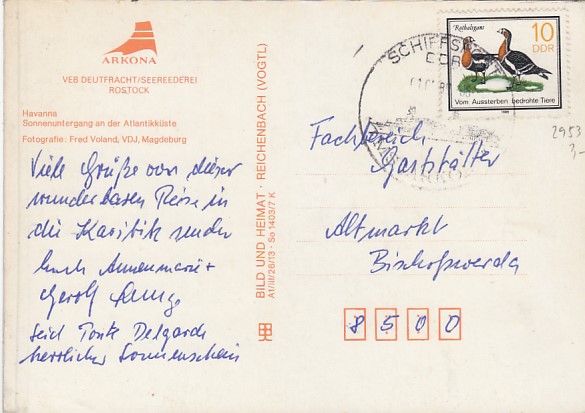 ARKONA
VEB DEUTFRACHT/SEEREEDEREI
ROSTOCK
Havanna
Sonnenuntergang an der Atlantikküste
Fotografie: Fred Voland, VDJ, Magdeburg
Viele Grüße von dieser
wunderbaren Reise in
die Karibik senden
Euch Annemarie +
Gerolf
Seit Ponta Delgarda
herrlicher Sonnenschein
BILD UND HEIMAT · REICHENBACH (VOGTL)
A1/III/26/13 · So 1403/7 K
SCHIFFSPOST
DDR
Rothalsgans
10
DDR
Vom Aussterben bedrohte Tiere
2953
3,-
Fachbereich
Gaststätten
Altmarkt
Bischofswerda
8500